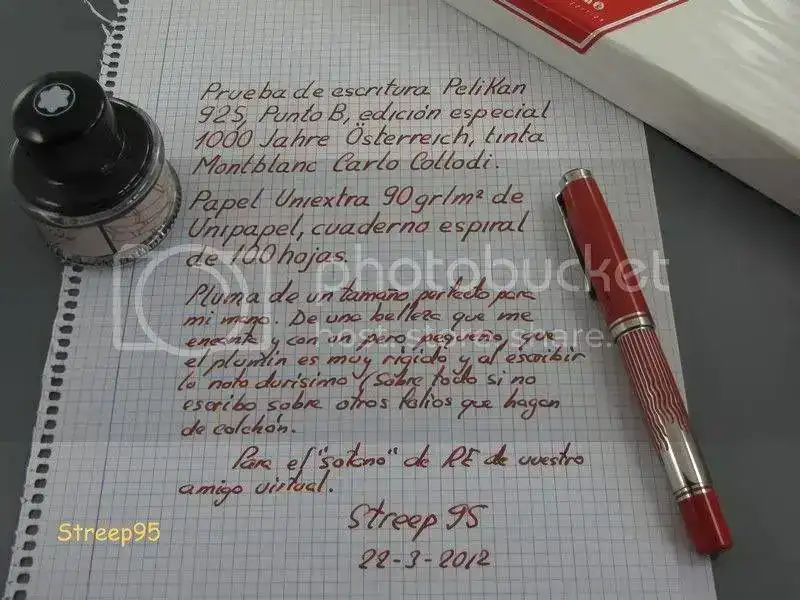 Prueba de escritura Pelikan
925, Punto B, edición especial
1000 Jahre Österreich, tinta
Montblanc Carlo Collodi.
Papel Uniextra 90gr/m² de
Unipapel, cuaderno espiral
de 100 hojas.
Pluma de un tamaño perfecto para
mi mano. De una belleza que me
encanta y con un pero pequeño, que
el plumín es muy rígido y al escribir
lo noto durísimo (sobre todo si no
escribo sobre otros folios que hagan
de colchón.
Para el "sotano" de RE de vuestro
amigo virtual.
Streep95
22-3-2012
Streep95
photobucket
host. store. share.